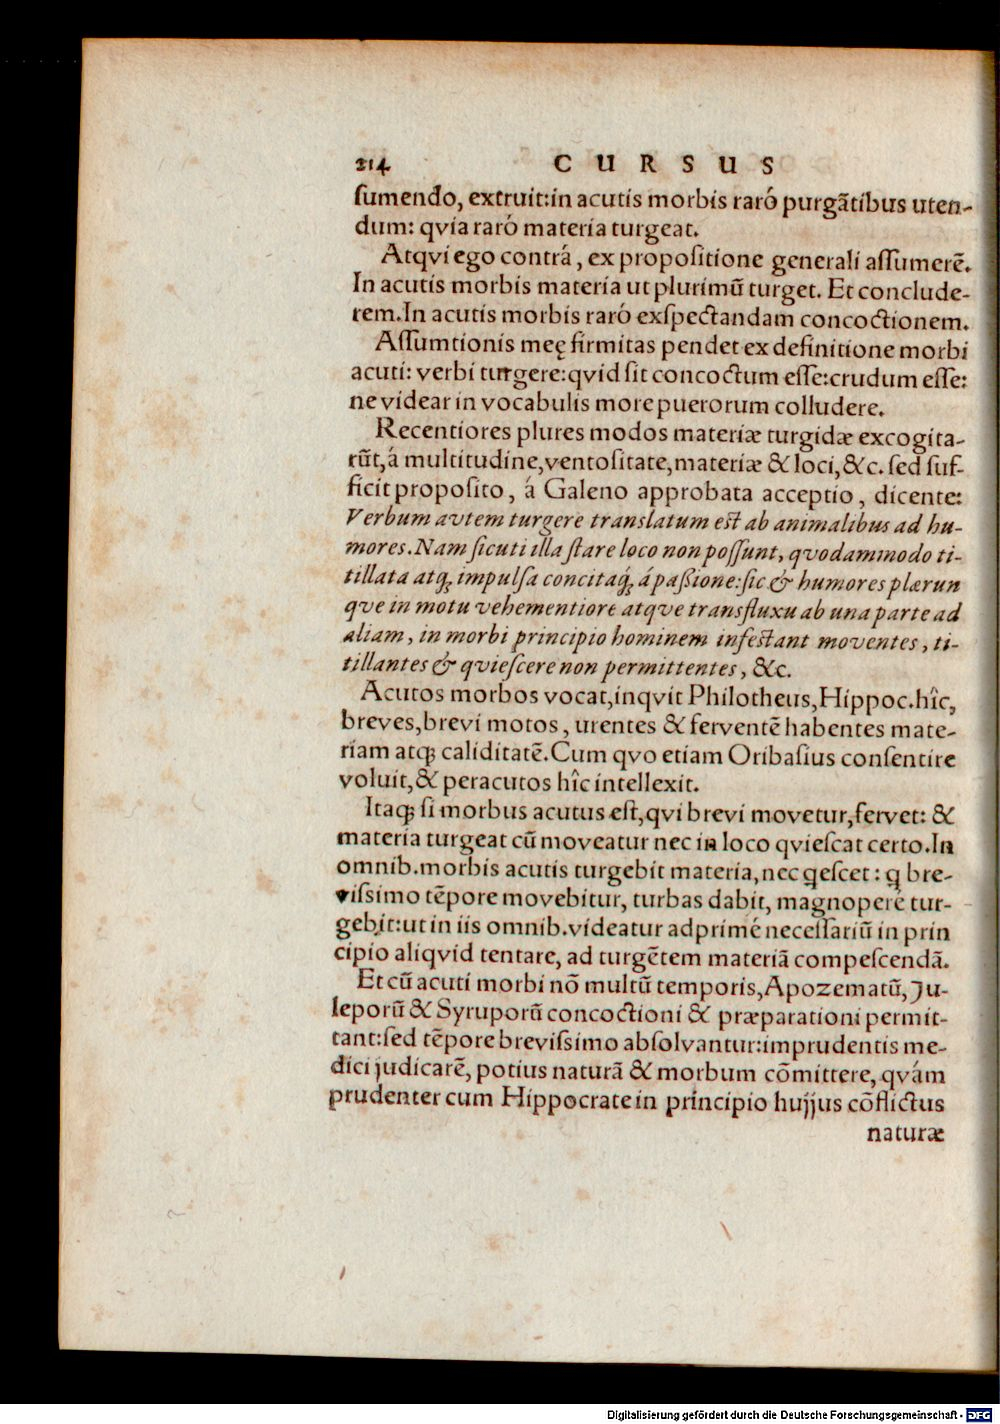 214 CURSUS
sumendo, extruit: in acutis morbis raró purgãtibus uten-
dum: qvia raró materia turgeat.
Atqvi ego contrá, ex propositione generali assumerẽ.
In acutis morbis materia ut plurimũ turget. Et conclude-
rem. In acutis morbis raró exspectandam concoctionem.
Assumtionis meę firmitas pendet ex definitione morbi
acuti: verbi turgere: qvid sit concoctum esse: crudum esse:
ne videar in vocabulis more puerorum colludere.
Recentiores plures modos materiæ turgidæ excogita-
rũt, á multitudine, ventositate, materiæ & loci, &c. sed suf-
ficit proposito, á Galeno approbata acceptio, dicente:
Verbum avtem turgere translatum est ab animalibus ad hu-
mores. Nam sicuti illa stare loco non possunt, qvodammodo ti-
tillata atq́; impulsa concitaq́; á passione: sic & humores plærun
qve in motu vehementiore atqve transfluxu ab una parte ad
aliam, in morbi principio hominem infestant moventes, ti-
tillantes & qviescere non permittentes, &c.
Acutos morbos vocat, inqvit Philotheus, Hippoc. hîc,
breves, brevi motos, urentes & ferventẽ habentes mate-
riam atq; caliditatẽ. Cum qvo etiam Oribasius consentire
voluit, & peracutos hîc intellexit.
Itaq; si morbus acutus est, qvi brevi movetur, fervet: &
materia turgeat cũ moveatur nec in loco qviescat certo. In
omnib. morbis acutis turgebit materia, nec qescet: q bre-
vissimo tẽpore movebitur, turbas dabit, magnoperé tur-
gebit: ut in iis omnib. videatur adprimé necessariũ in prin
cipio aliqvid tentare, ad turgẽtem materiã compescendã.
Et cũ acuti morbi nõ multũ temporis, Apozematũ, Ju-
leporũ & Syruporũ concoctioni & præparationi permit-
tant: sed tẽpore brevissimo absolvantur: imprudentis me-
dici judicarẽ, potius naturã & morbum cõmittere, qvám
prudenter cum Hippocrate in principio hujjus cõflictus
naturæ
Digitalisierung gefördert durch die Deutsche Forschungsgemeinschaft - DFG